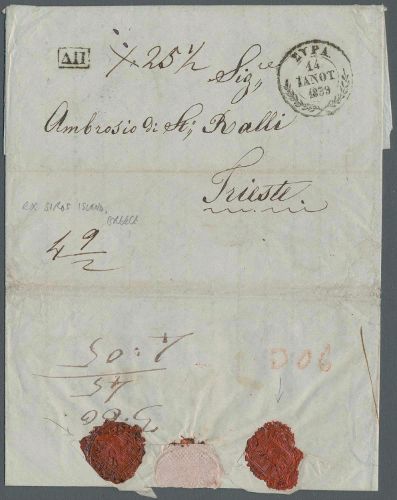 ΔΠ
X. 25 1/2
ΣΥΡΑ
14
ΙΑΝΟΥ
1839
Sig.re
Ambrosio di St; Ralli
Trieste
EX SIROS ISLAND,
GREECE
4 9/2
1:05
45